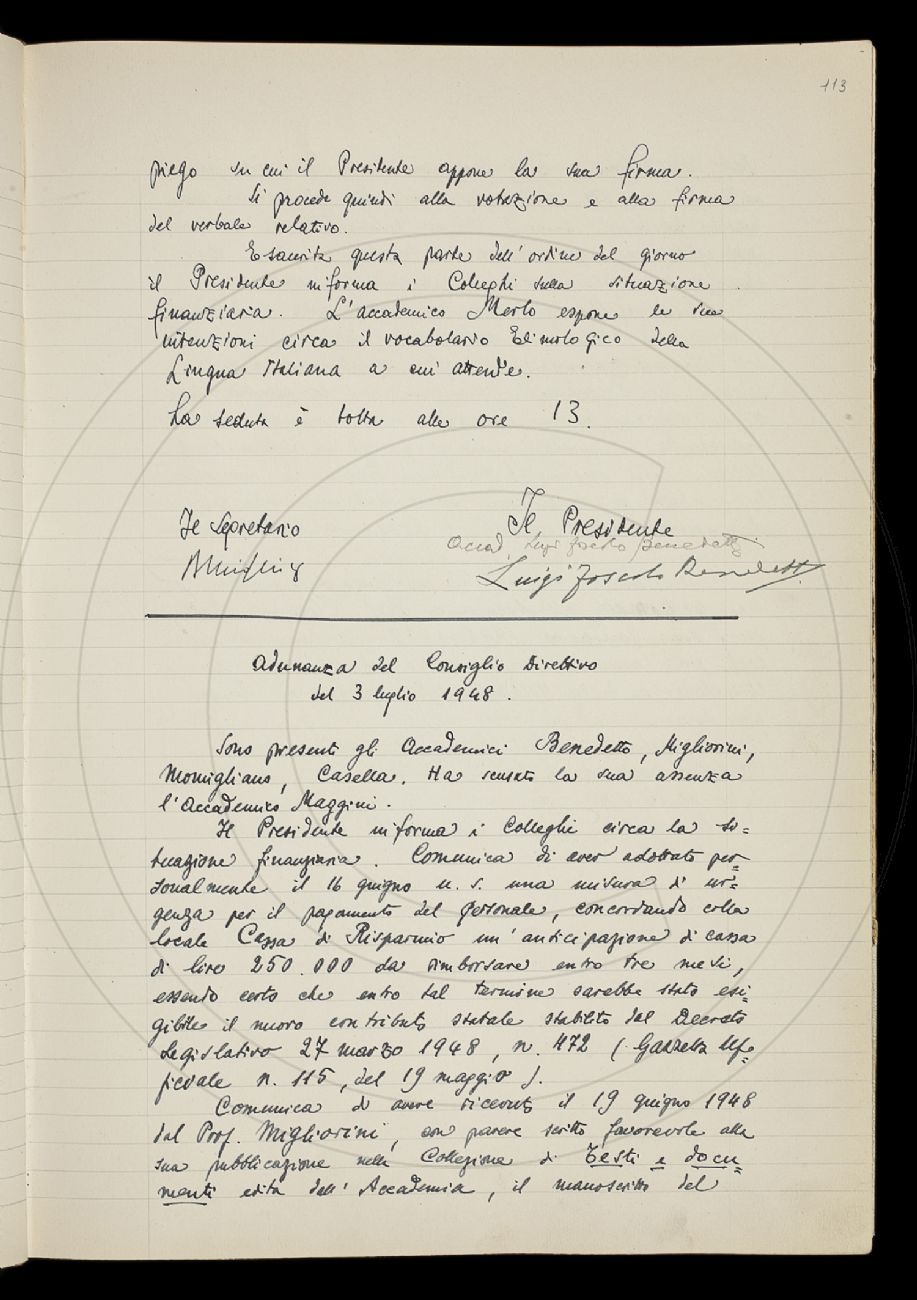 113
piego su cui il Presidente appone la sua firma.
Si procede quindi alla votazione e alla firma
del verbale relativo.
Esaurita questa parte dell'ordine del giorno
il Presidente informa i Colleghi sulla situazione
finanziaria. L'accademico Merlo espone le sue
intenzioni circa il vocabolario Etimologico della
Lingua Italiana a cui attende.
La seduta è tolta alle ore 13.
Il Segretario
Il Presidente
Accad. Luigi Foscolo Benedetto
BMigliorini
Luigi Foscolo Benedetto
Adunanza del Consiglio Direttivo
del 3 luglio 1948.
Sono presenti gli Accademici Benedetto, Migliorini,
Momigliano, Casella. Ha scusato la sua assenza
l'Accademico Maggini.
Il Presidente informa i Colleghi circa la si=
tuazione finanziaria. Comunica di aver adottato per=
sonalmente il 16 giugno u. s. una misura d'ur=
genza per il pagamento del personale, concordando colla
locale Cassa di Risparmio un'anticipazione di cassa
di lire 250.000 da rimborsare entro tre mesi,
essendo certo che entro tal termine sarebbe stato esi=
gibile il nuovo contributo statale stabilito dal Decreto
Legislativo 27 marzo 1948, n. 472 (Gazzetta Uf=
ficiale n. 115, del 19 maggio).
Comunica di avere ricevuto il 19 giugno 1948
dal Prof. Migliorini, con parere scritto favorevole alla
sua pubblicazione nella Collezione di Testi e docu=
menti edita dall'Accademia, il manoscritto del